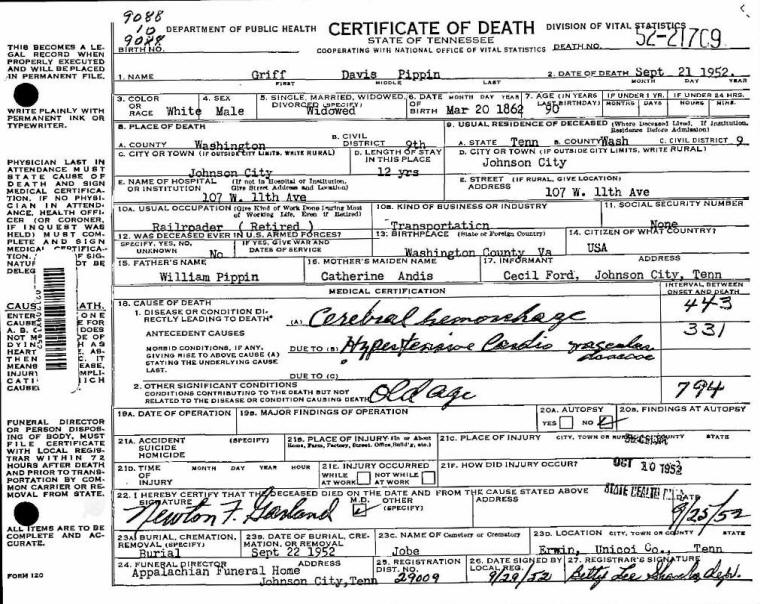 9088
10
9088
DEPARTMENT OF PUBLIC HEALTH CERTIFICATE OF DEATH DIVISION OF VITAL STATISTICS
STATE OF TENNESSEE
BIRTH NO. COOPERATING WITH NATIONAL OFFICE OF VITAL STATISTICS DEATH NO. 52-21709
THIS BECOMES A LEGAL RECORD WHEN
PROPERLY EXECUTED
AND WILL BE PLACED
IN PERMANENT FILE.
WRITE PLAINLY WITH
PERMANENT INK OR
TYPEWRITER.
PHYSICIAN LAST IN
ATTENDANCE MUST
STATE CAUSE OF
DEATH AND SIGN
MEDICAL CERTIFICATION, IF NO PHYSICIAN IN ATTENDANCE, HEALTH OFFICER (OR CORONER,
IF INQUEST WAS
HELD) MUST COMPLETE AND SIGN
FUNERAL DIRECTOR
OR PERSON DISPOSING OF BODY, MUST
FILE CERTIFICATE
WITH LOCAL REGISTRAR WITHIN 72
HOURS AFTER DEATH
AND PRIOR TO TRANSPORTATION BY COMMON CARRIER OR REMOVAL FROM STATE.
ALL ITEMS ARE TO BE
COMPLETE AND ACCURATE.
FORM 120
1. NAME Griff Davis Pippin 2. DATE OF DEATH Sept 21 1952
FIRST MIDDLE LAST MONTH DAY YEAR
3. COLOR OR RACE White 4. SEX Male 5. SINGLE, MARRIED, WIDOWED, DIVORCED (SPECIFY) Widowed 6. DATE OF BIRTH MONTH DAY YEAR Mar 20 1862 7. AGE (IN YEARS LAST BIRTHDAY) 90 IF UNDER 1 YR. MONTHS DAYS IF UNDER 24 HRS. HOURS MINS.
8. PLACE OF DEATH 9. USUAL RESIDENCE OF DECEASED (Where Deceased Lived, If Institution, Residence Before Admission)
A. COUNTY Washington B. CIVIL DISTRICT 9th A. STATE Tenn B. COUNTY Wash C. CIVIL DISTRICT 9
C. CITY OR TOWN (IF OUTSIDE CITY LIMITS, WRITE RURAL) Johnson City D. LENGTH OF STAY IN THIS PLACE 12 yrs D. CITY OR TOWN (IF OUTSIDE CITY LIMITS, WRITE RURAL) Johnson City
E. NAME OF HOSPITAL OR INSTITUTION (If not in Hospital or Institution, Give Street Address and Location) 107 W. 11th Ave E. STREET ADDRESS (IF RURAL, GIVE LOCATION) 107 W. 11th Ave
10A. USUAL OCCUPATION (Give Kind of Work Done During Most of Working Life, Even if Retired) Railroader ( Retired ) 10B. KIND OF BUSINESS OR INDUSTRY Transportation 11. SOCIAL SECURITY NUMBER None
12. WAS DECEASED EVER IN U.S. ARMED FORCES? SPECIFY, YES, NO, UNKNOWN No IF YES, GIVE WAR AND DATES OF SERVICE 13. BIRTHPLACE (State or Foreign Country) Washington County Va 14. CITIZEN OF WHAT COUNTRY? USA
15. FATHER'S NAME William Pippin 16. MOTHER'S MAIDEN NAME Catherine Andis 17. INFORMANT ADDRESS Cecil Ford, Johnson City, Tenn
MEDICAL CERTIFICATION INTERVAL BETWEEN ONSET AND DEATH
18. CAUSE OF DEATH
1. DISEASE OR CONDITION DIRECTLY LEADING TO DEATH* (A) Cerebral hemorrhage 443
ANTECEDENT CAUSES 331
MORBID CONDITIONS, IF ANY, GIVING RISE TO ABOVE CAUSE (A) STATING THE UNDERLYING CAUSE LAST. DUE TO (B) Hypertensive Cardio vascular disease
DUE TO (C)
2. OTHER SIGNIFICANT CONDITIONS
CONDITIONS CONTRIBUTING TO THE DEATH BUT NOT RELATED TO THE DISEASE OR CONDITION CAUSING DEATH Old age 794
19A. DATE OF OPERATION 19B. MAJOR FINDINGS OF OPERATION 20A. AUTOPSY YES NO 20B. FINDINGS AT AUTOPSY
21A. ACCIDENT SUICIDE HOMICIDE (SPECIFY) 21B. PLACE OF INJURY (In or About Home, Farm, Factory, Street, Office, Build'g, etc.) 21C. PLACE OF INJURY CITY, TOWN OR STATE
21D. TIME OF INJURY MONTH DAY YEAR HOUR 21E. INJURY OCCURRED WHILE AT WORK NOT WHILE AT WORK 21F. HOW DID INJURY OCCUR? OCT 10 1952
22. I HEREBY CERTIFY THAT THE DECEASED DIED ON THE DATE AND FROM THE CAUSE STATED ABOVE
SIGNATURE Newton F. Garland M.D. OTHER (SPECIFY) ADDRESS DATE 9/25/52
23A. BURIAL, CREMATION, REMOVAL (SPECIFY) Burial 23B. DATE OF BURIAL, CREMATION, OR REMOVAL Sept 22 1952 23C. NAME OF Cemetery or Crematory Jobe 23D. LOCATION CITY, TOWN OR COUNTY STATE Erwin, Unicoi Co., Tenn
24. FUNERAL DIRECTOR ADDRESS Appalachian Funeral Home Johnson City, Tenn 25. REGISTRATION DIST. NO. 29009 26. DATE SIGNED BY LOCAL REG. 9/29/52 27. REGISTRAR'S SIGNATURE Betty Lee dept.